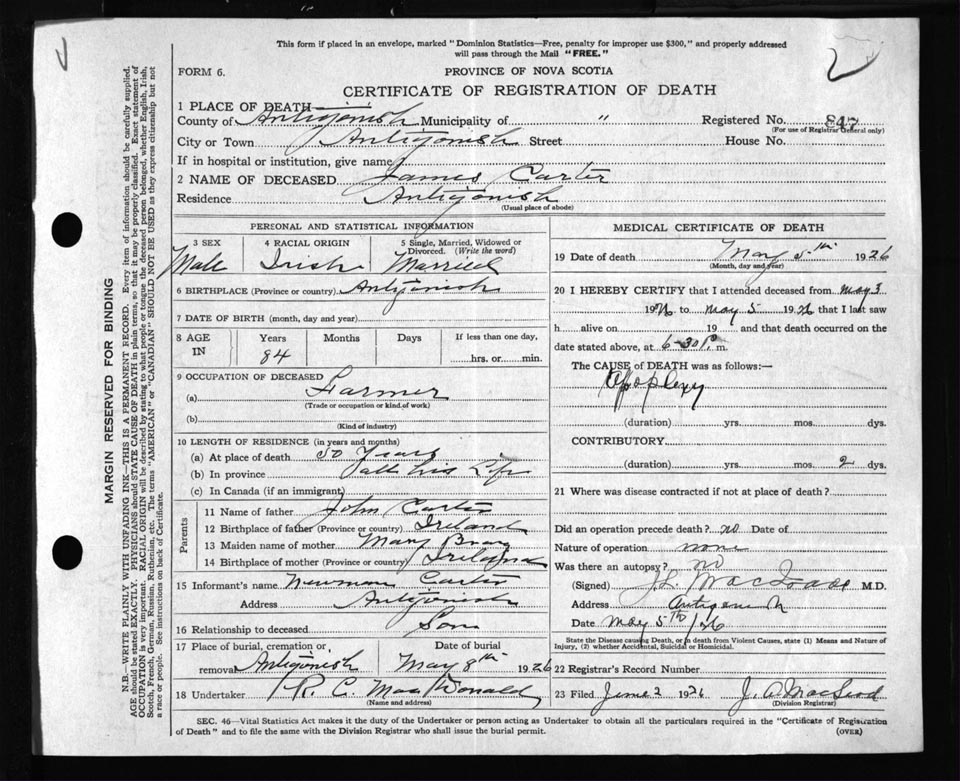 This form if placed in an envelope, marked "Dominion Statistics—Free, penalty for improper use $300," and properly addressed
will pass through the Mail "FREE."
FORM 6.
PROVINCE OF NOVA SCOTIA
CERTIFICATE OF REGISTRATION OF DEATH
1 PLACE OF DEATH
County of Antigonish Municipality of " Registered No. 847
(For use of Registrar General only)
City or Town Antigonish Street House No.
If in hospital or institution, give name
2 NAME OF DECEASED James Carter
Residence Antigonish
(Usual place of abode)
PERSONAL AND STATISTICAL INFORMATION
3 SEX 4 RACIAL ORIGIN 5 Single, Married, Widowed or
Divorced. (Write the word)
Male Irish Married
6 BIRTHPLACE (Province or country) Antigonish
7 DATE OF BIRTH (month, day and year)
8 AGE IN Years Months Days If less than one day,
84 hrs. or min.
9 OCCUPATION OF DECEASED
(a) Farmer
(Trade or occupation or kind of work)
(b)
(Kind of industry)
10 LENGTH OF RESIDENCE (in years and months)
(a) At place of death 50 Years
(b) In province all his Life
(c) In Canada (if an immigrant)
Parents
11 Name of father John Carter
12 Birthplace of father (Province or country) Ireland
13 Maiden name of mother Mary
14 Birthplace of mother (Province or country) Ireland
15 Informant's name Newman Carter
Address Antigonish
16 Relationship to deceased Son
17 Place of burial, cremation or Date of burial
removal Antigonish May 8th 1926
18 Undertaker R. C. MacDonald
(Name and address)
MEDICAL CERTIFICATE OF DEATH
19 Date of death May 5th 1926
(Month, day and year)
20 I HEREBY CERTIFY that I attended deceased from May 3
1926 to May 5 1926 that I last saw
h alive on 19 and that death occurred on
date stated above, at 6-30 P. m.
The CAUSE of DEATH was as follows:—
Apoplexy
(duration) yrs. mos. dys.
CONTRIBUTORY
(duration) yrs. mos. 2 dys.
21 Where was disease contracted if not at place of death?
Did an operation precede death? no Date of
Nature of operation none
Was there an autopsy? no
(Signed) M.D.
Address Antigonish
Date May 5th/26
State the Disease causing Death, or in death from Violent Causes, state (1) Means and Nature of
Injury, (2) whether Accidental, Suicidal or Homicidal.
22 Registrar's Record Number
23 Filed June 2 1926 J. A. MacLeod
(Division Registrar)
SEC. 46—Vital Statistics Act makes it the duty of the Undertaker or person acting as Undertaker to obtain all the particulars required in the "Certificate of Registration
of Death" and to file the same with the Division Registrar who shall issue the burial permit. (OVER)
MARGIN RESERVED FOR BINDING
N.B.—WRITE PLAINLY WITH UNFADING INK—THIS IS A PERMANENT RECORD. Every item of information should be carefully supplied.
AGE should be stated EXACTLY. PHYSICIANS should STATE CAUSE OF DEATH in plain terms, so that it may be properly classified. Exact statement of
OCCUPATION is very important. RACIAL ORIGIN will be described by stating to what people or tongue the deceased person belonged, whether English, Irish,
Scotch, French, German, Russian, Ruthenian, etc. The terms "AMERICAN" or "CANADIAN" SHOULD NOT BE USED as they express citizenship but not
a race or people. See instructions on back of Certificate.